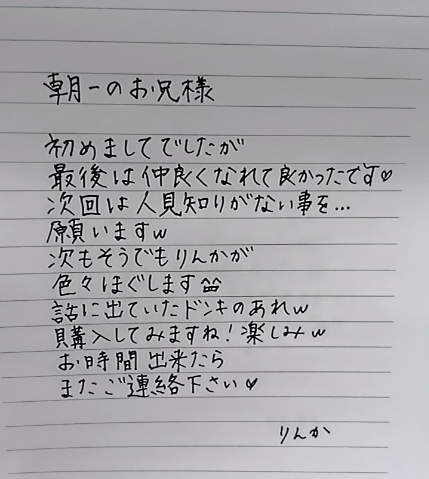 朝一のお兄様
初めましてでしたが
最後は仲良くなれて良かったです♡
次回は人見知りがない事を...
願いますw
次もそうでもりんかが
色々ほぐします
話に出ていたドンキのあれw
購入してみますね!楽しみw
お時間出来たら
またご連絡下さい♡
りんか